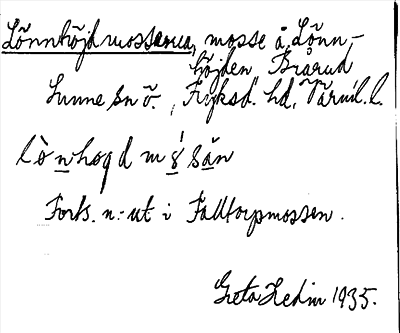 Lönnhöjdmossarna, mosse å Lönn-
höjden Brårud
Sunne sn ö., Fryksd. hd, Värml. l.
Forts. n. ut i Falltorpmossen.
Greta Hedin 1935.